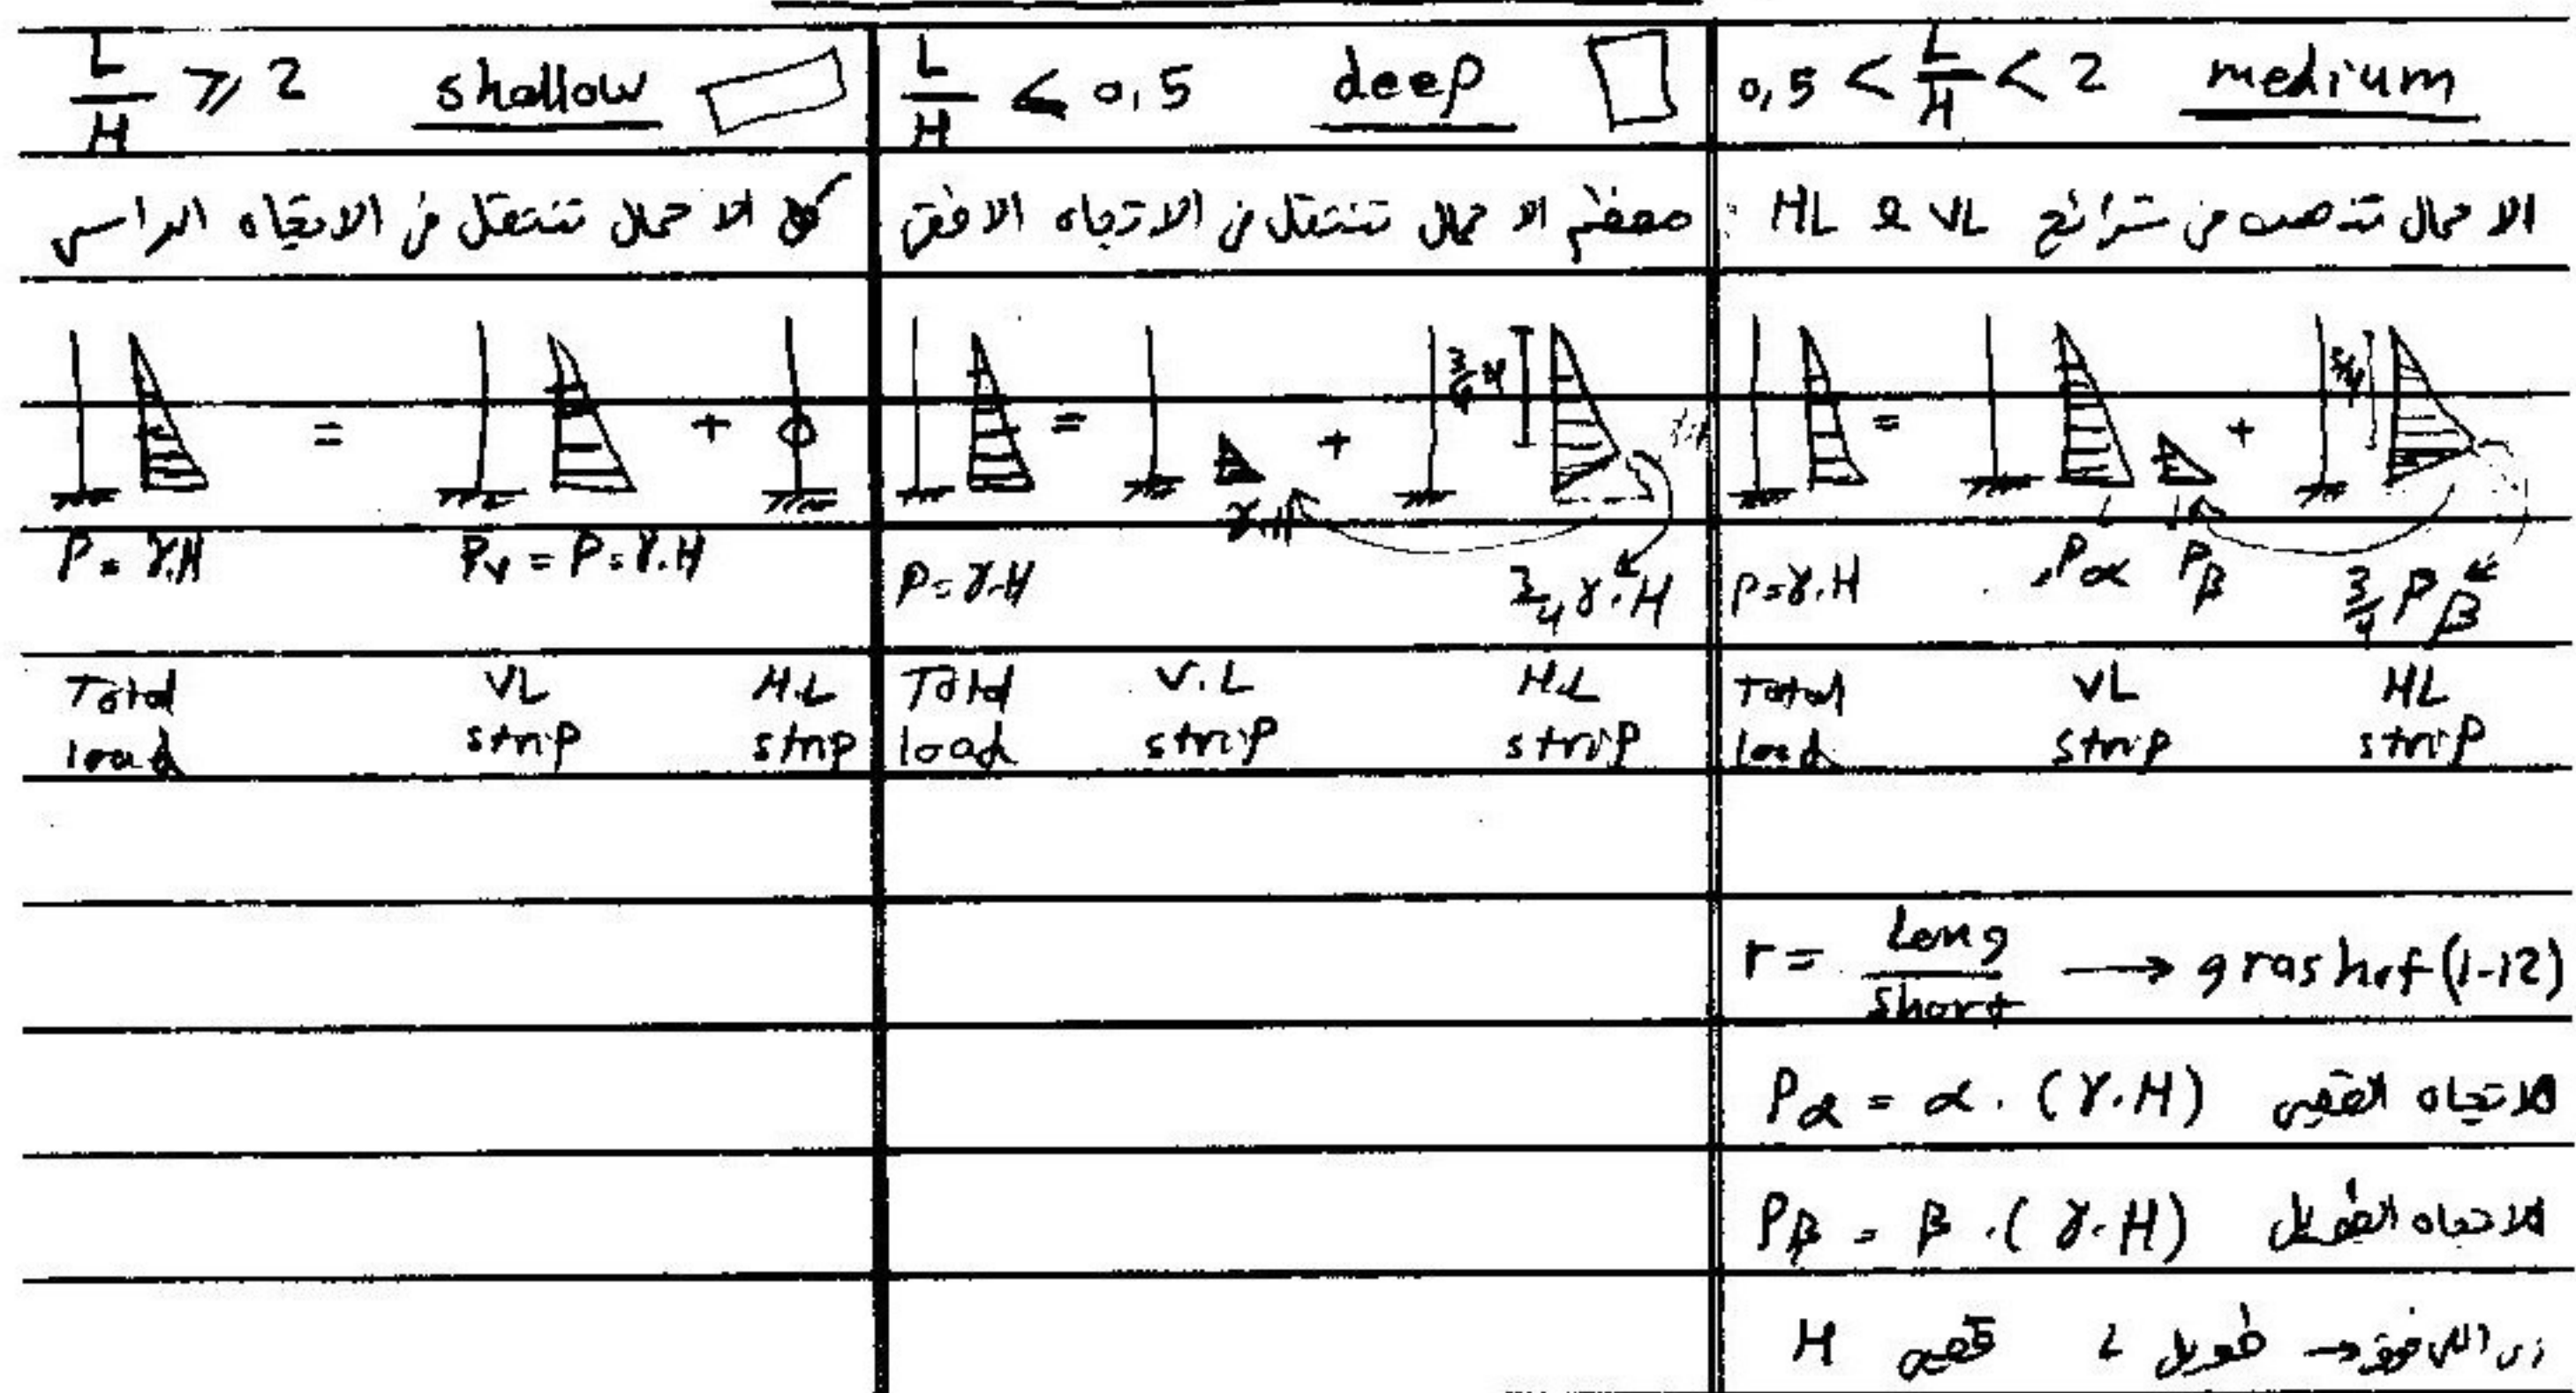 L/H ≥ 2 shallow
كل الاحمال تنتقل في الاتجاه الراسي
=
+
P = γ.H
Pv = P = γ.H
Total load
VL strip
H.L strip
L/H < 0,5 deep
معظم الاحمال تنتقل في الاتجاه الافقي
=
+
3/4 H
γ.H
P = γ.H
3/4 γ.H
Total load
V.L strip
H.L strip
0,5 < L/H < 2 medium
الاحمال تنتقل في شرائح VL & HL
=
+
3/4
P = γ.H
Pα
Pβ
3/4 Pβ
Total load
VL strip
HL strip
r = Long/Short → grashof (1-12)
Pα = α . (γ.H) الاتجاه القصير
Pβ = β . (γ.H) الاتجاه الطويل
اللي فوق → طويل L قصير H